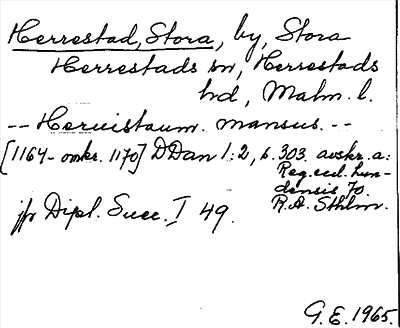 Herrestad, Stora, by, Stora
Herrestads sn, Herrestads
hd, Malm. l.
-- Heruistaum. mansus. --
[1164- omkr. 1170] DDan 1:2, s. 303. avskr. a:
Reg. eccl. Lun-
densis 70.
R.A. Sthlm.
jfr Dipl. Suec. I 49.
G.E. 1965.